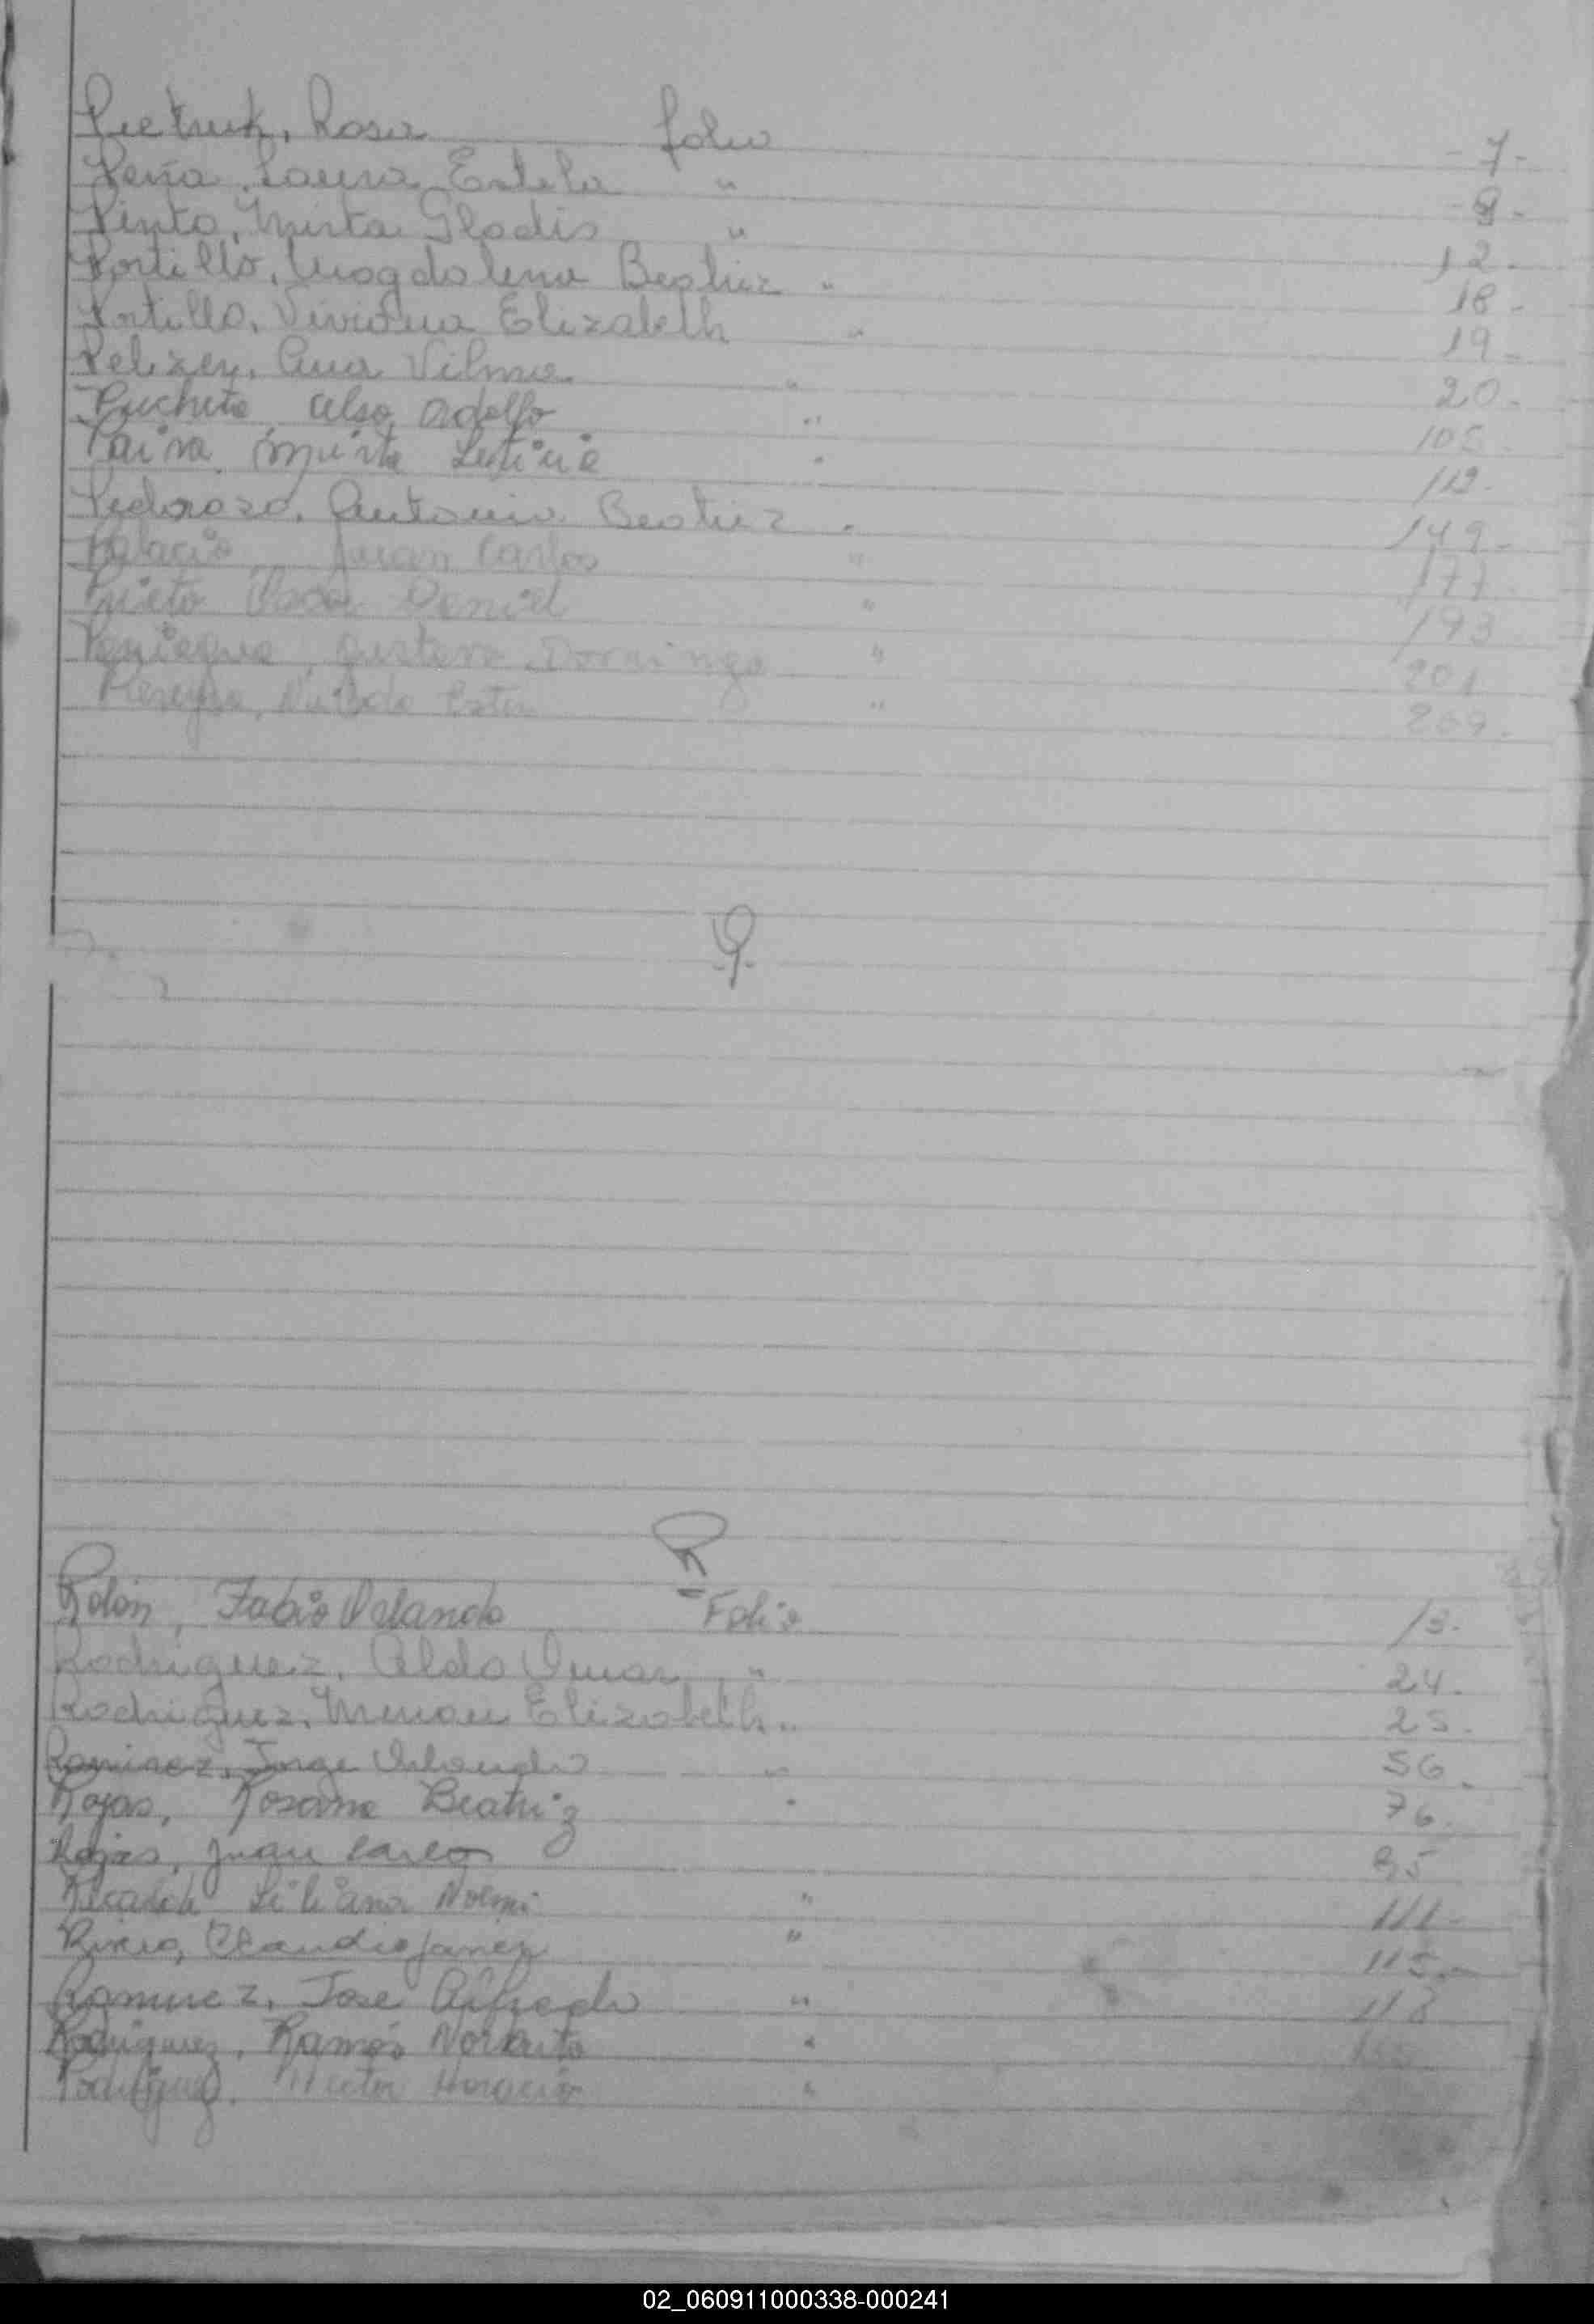 Pietruk, Rosa folio - 7 -
Peña, Laura Estela " - 9 -
Pinto, Mirta Gladis " 12 -
Portillo, Magdalena Beatriz " 18 -
Portillo, Viviana Elizabeth " 19 -
Pelizey, Ana Vilma " 20 -
Puchete Celso Adolfo " 105
Paiva Mirta Leticia " 112 -
Pedrozo, Antonia Beatriz " 149 -
Palacio Juan Carlos " 177
Prieto Oscar Daniel " 193
Paniagua, Gustavo Domingo " 201
Pereyra, Ester " 209
Q
R
Rolón, Fabio Orlando Folio 13 -
Rodriguez, Aldo Omar " 24 -
Rodriguez, Miriam Elizabeth " 25 -
Ramirez, Jorge Orlando " 56 -
Rojas, Rosana Beatriz " 76 -
Rojas, Juan Carlos 95
Liliana Noemi " 111 -
Claudio " 115 -
Ramirez, Jose Alfredo " 118
Rodriguez, Ramón Norberto "
Rodriguez, Horacio "
02_060911000338-000241